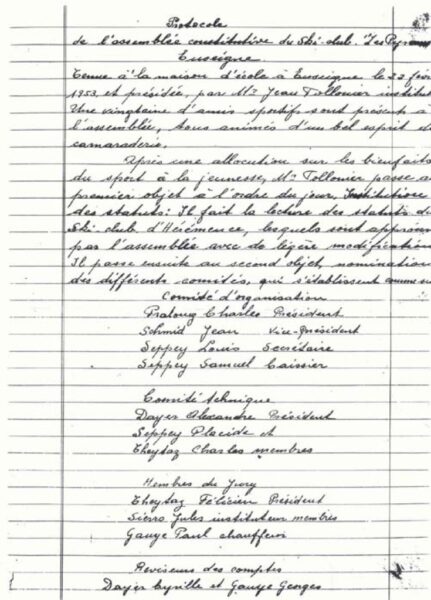 Protocole
de l'assemblée constitutive du Ski-club "Les Pyram
Euseigne
Tenue à la maison d'école à Euseigne le 22 fév
1953, et présidée, par Mr Jean Tollonier institut
Une vingtaine d'amis sportifs sont présent à
l'assemblée, tous animés d'un bel esprit de
camaraderie.
Après une allocution sur les bienfaits
du sport à la jeunesse, Mr Tollonier passe au
premier objet à l'ordre du jour,
des statuts: Il fait la lecture des statuts du
Ski club d'Hérémence, lesquels sont approuv
par l'assemblée avec de légère modification
Il passe ensuite au second objet, nomination
des différents comités, qui s'établissent comme su
Comité d'organisation
Pralong Charles Président
Schmid Jean Vice-Président
Seppey Louis Secrétaire
Seppey Samuel Caissier
Comité technique
Dayer Alexandre Président
Seppey Placide et
Theytaz Charles membres
Membres du Jury
Theytaz Félicien Président
Sierro Jules instituteur membres
Gauye Paul chauffeur
Reviseurs des comptes
Dayer Cyrille et Gauye Georges